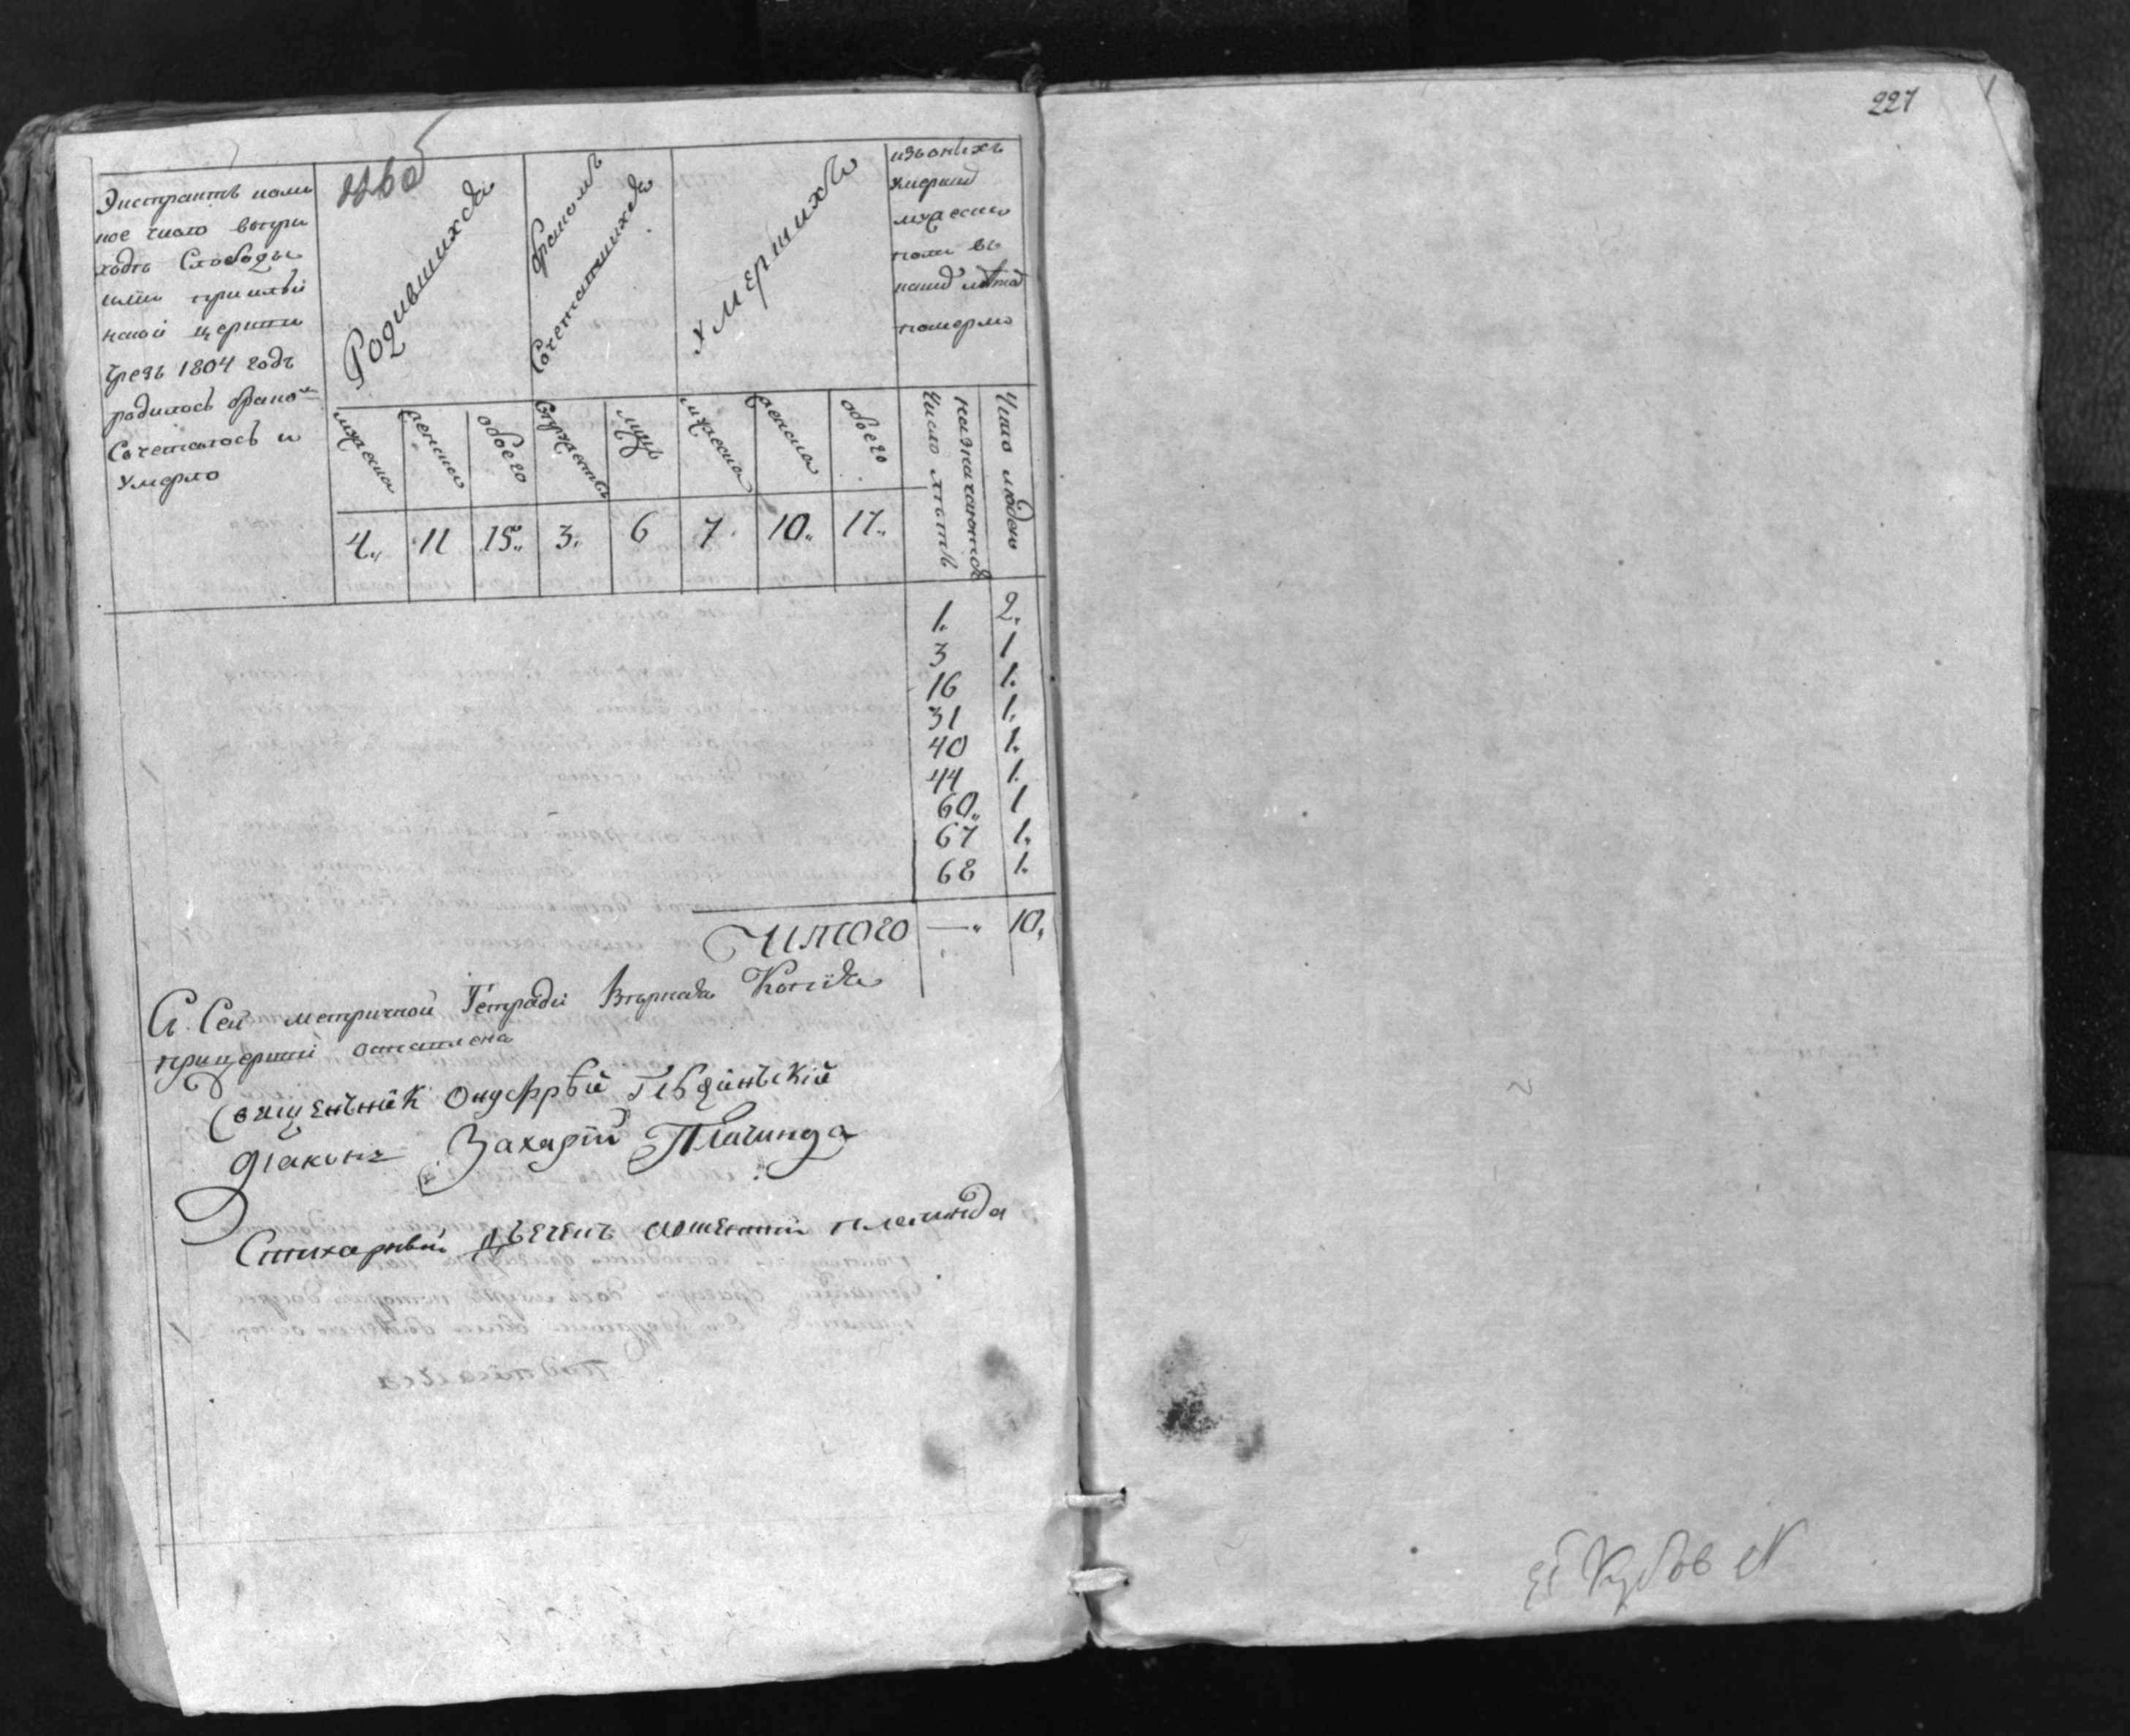 227
Экстрактъ коли
кое число вопри
ходѣ Слободы
церкви
чрезъ 1804 годъ
родилось брако
Сочеталось и
Умерло
Родившихся
бракомъ
Сочетавшихся
Умершихъ
изъ онихъ
мужеска
пола въ
какид лѣта
померло
мужеска
женска
обоего
Супружествъ
лицъ
мужеска
женска
обоего
Число лѣтъ
Число людей
4. 11 15. 3. 6 7. 10. 17.
1. 2.
3 1
16 1.
31 1.
40 1.
44 1.
60. 1
67 1.
68 1.
Итого — 10.
Сей метричной Тетради Вѣрная Копія
прицеркви оставлена
Священникъ Онуфрѣй
Діаконъ Захарій Плачинда
Стихарный дьячекъ плачинда